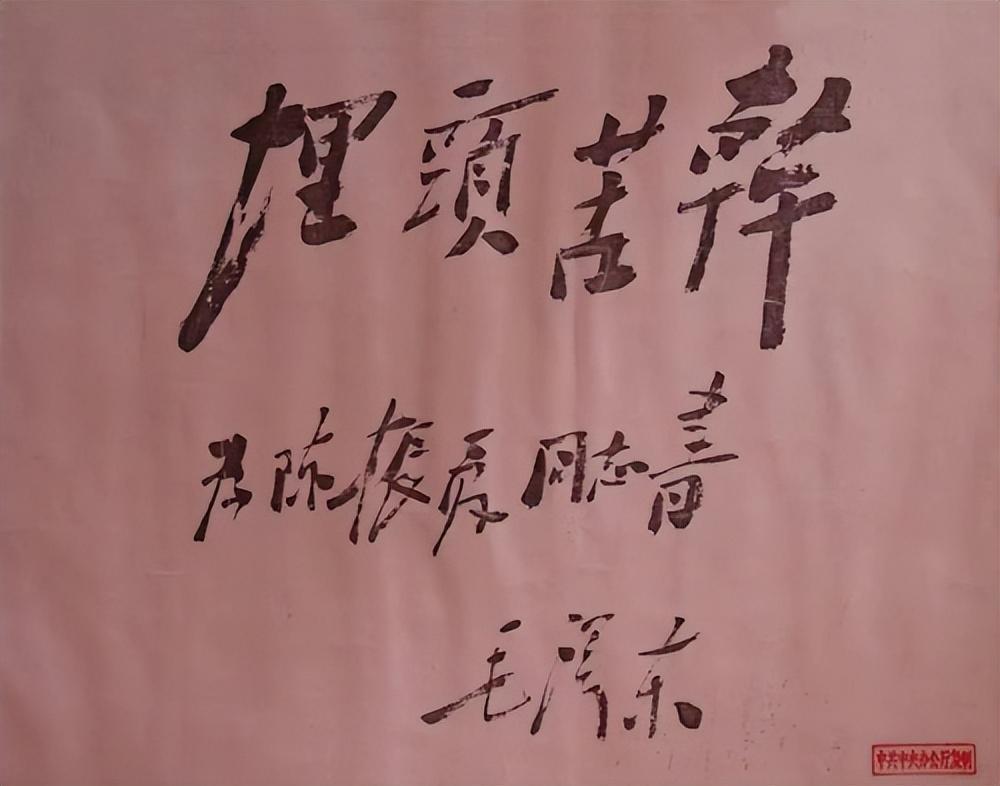 埋頭苦幹
为陈振夏同志書
毛澤东
中共中央办公厅复制